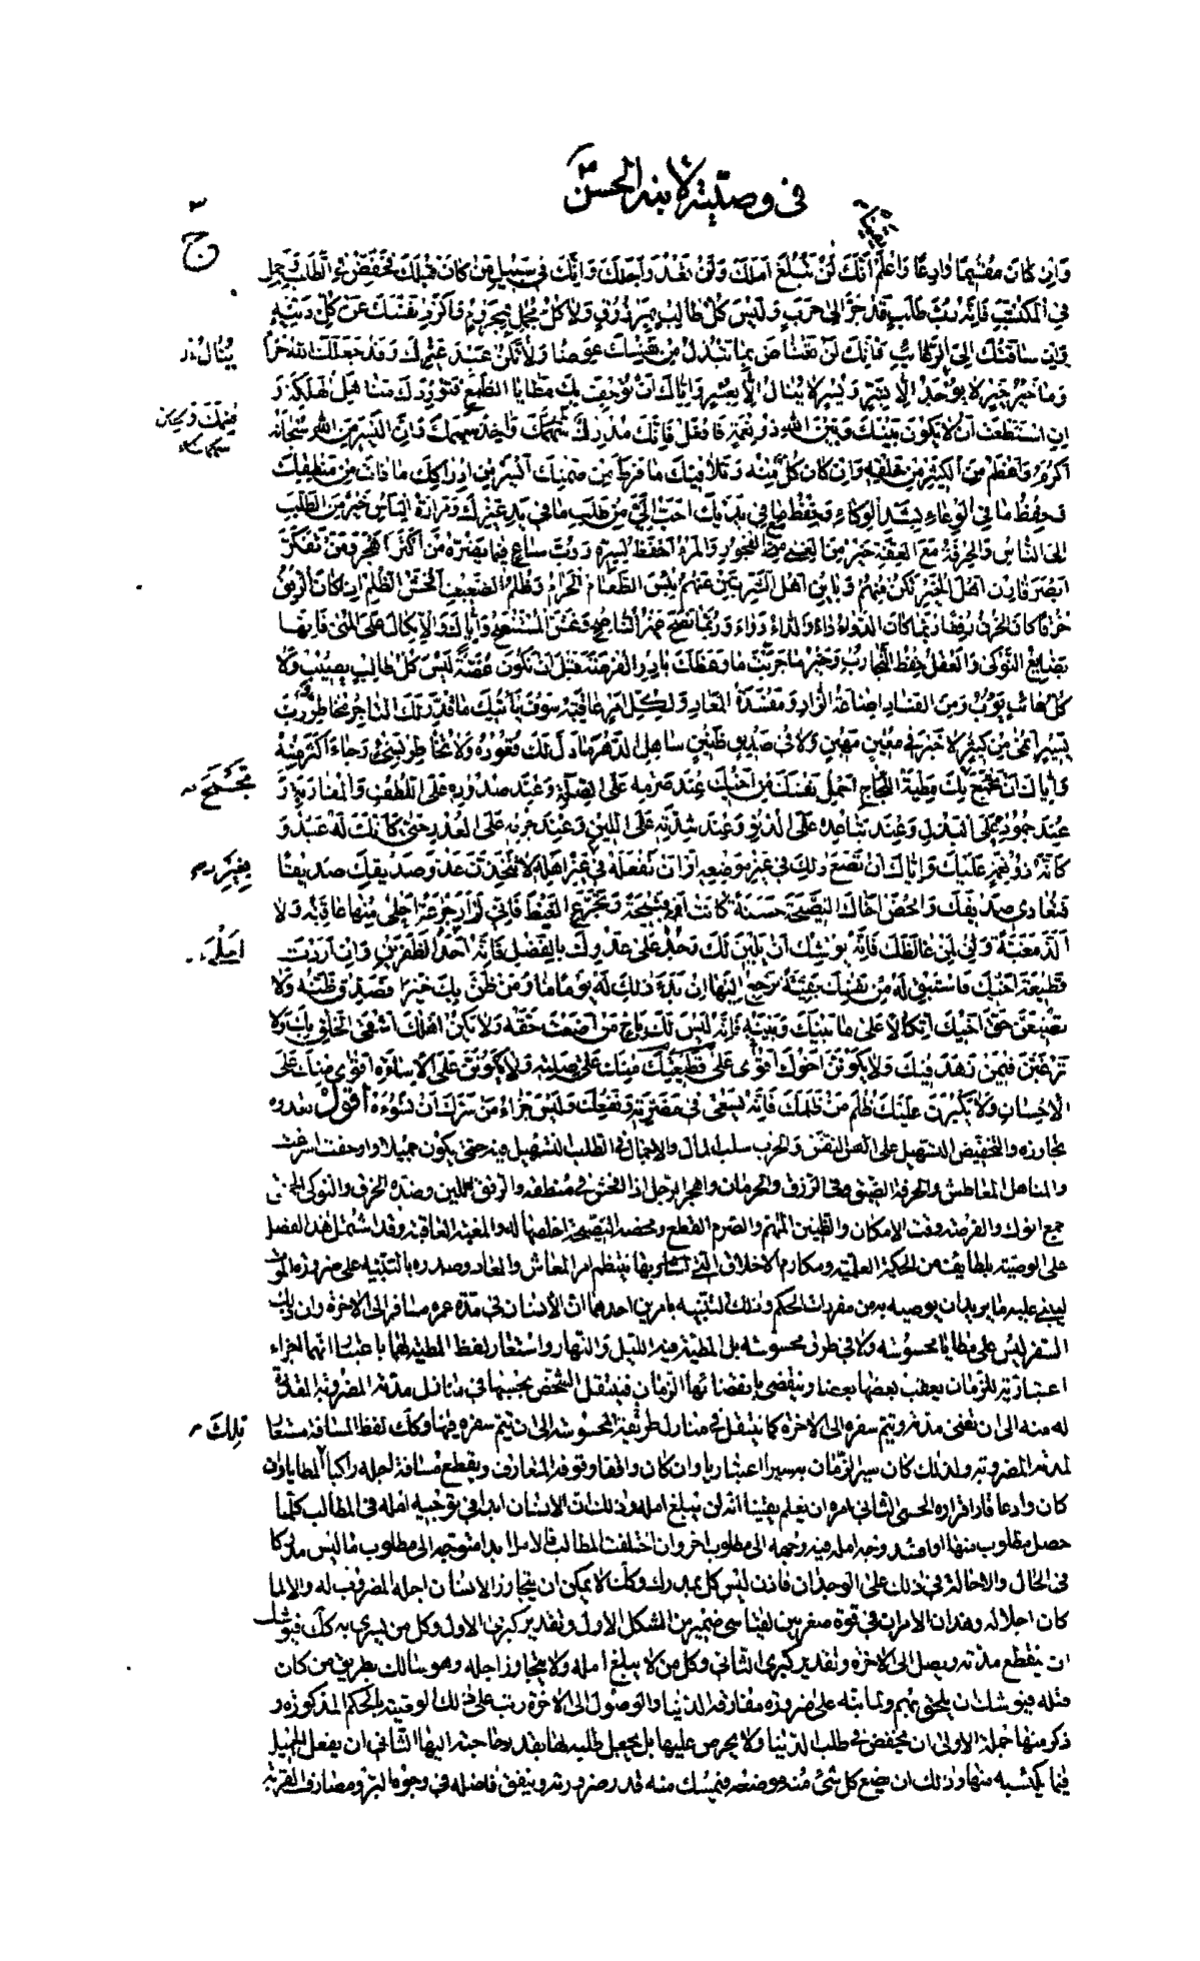 في وصيته لابنه الحسن
وَاِن كانَ مُقيمًا وادِعًا وَاعلَم اَنَّكَ لَن تَبلُغَ اَمَلَكَ وَلَن تَعدُوَ اَجَلَكَ وَاِنَّكَ في سَبيلِ مَن كانَ قَبلَكَ فَخَفِّض في الطَّلَبِ وَاَجمِل
في المُكتَسَبِ فَاِنَّه رُبَّ طَلَبٍ قَد جَرَّ اِلى حَرَبٍ وَلَيسَ كُلُّ طالِبٍ بِمَرزُوقٍ وَلا كُلُّ مُجمِلٍ بِمَحرُومٍ وَاَكرِم نَفسَكَ عَن كُلِّ دَنِيَّةٍ
وَاِن ساقَتكَ اِلى الرَّغائِبِ فَاِنَّكَ لَن تَعتاضَ بِما تَبذُلُ مِن نَفسِكَ عِوَضًا وَلا تَكُن عَبدَ غَيرِكَ وَقَد جَعَلَكَ اللهُ حُرًّا
وَما خَيرُ خَيرٍ لا يُوجَدُ اِلّا بِشَرٍّ وَيُسرٍ لا يُنالُ اِلّا بِعُسرٍ وَاِيّاكَ اَن تُوجِفَ بِكَ مَطايا الطَّمَعِ فَتُورِدَكَ مَناهِلَ الهَلَكَةِ وَ
اِنِ استَطَعتَ اَن لا يَكُونَ بَينَكَ وَبَينَ اللهِ ذو نِعمَةٍ فَافعَل فَاِنَّكَ مُدرِكٌ قِسمَكَ وَآخِذٌ سَهمَكَ وَاِنَّ اليَسيرَ مِنَ اللهِ سُبحانَه
اَكرَمُ وَاَعظَمُ مِنَ الكَثيرِ مِن خَلقِه وَاِن كانَ كُلٌّ مِنه وَتَلافيكَ ما فَرَطَ مِن صَمتِكَ اَيسَرُ مِن اِدراكِكَ ما فاتَ مِن مَنطِقِكَ
وَحِفظُ ما في الوِعاءِ بِشَدِّ الوِكاءِ وَحِفظُ ما في يَدَيكَ اَحَبُّ اِلَيَّ مِن طَلَبِ ما في يَدِ غَيرِكَ وَمَرارَةُ اليَأسِ خَيرٌ مِنَ الطَّلَبِ
اِلى النّاسِ وَالحِرفَةُ مَعَ العِفَّةِ خَيرٌ مِنَ الغِنى مَعَ الفُجُورِ وَالمَرءُ اَحفَظُ لِسِرِّه وَرُبَّ ساعٍ فيما يَضُرُّه مَن اَكثَرَ اَهجَرَ وَمَن تَفَكَّرَ
اَبصَرَ قارِن اَهلَ الخَيرِ تَكُن مِنهُم وَبايِن اَهلَ الشَّرِّ تَبِن عَنهُم بِئسَ الطَّعامُ الحَرامُ وَظُلمُ الضَّعيفِ اَفحَشُ الظُّلمِ اِذا كانَ الرِّفقُ
خُرقًا كانَ الخُرقُ رِفقًا رُبَّما كانَ الدَّواءُ داءً وَالدّاءُ دَواءً وَرُبَّما نَصَحَ غَيرُ النّاصِحِ وَغَشَّ المُستَنصَحُ وَاِيّاكَ وَالاِتِّكالَ عَلى المُنى فَاِنَّها
بَضائِعُ النَّوكى وَالعَقلُ حِفظُ التَّجارِبِ وَخَيرُ ما جَرَّبتَ ما وَعَظَكَ بادِرِ الفُرصَةَ قَبلَ اَن تَكُونَ غُصَّةً لَيسَ كُلُّ طالِبٍ يُصيبُ وَلا
كُلُّ غائِبٍ يَؤُبُ وَمِنَ الفَسادِ اِضاعَةُ الزّادِ وَمَفسَدَةُ المَعادِ وَلِكُلِّ اَمرٍ عاقِبَةٌ سَوفَ يَأتيكَ ما قُدِّرَ لَكَ التّاجِرُ مُخاطِرٌ وَرُبَّ
يَسيرٍ اَنمى مِن كَثيرٍ لا خَيرَ في مُعينٍ مَهينٍ وَلا في صَديقٍ ظَنينٍ ساهِلِ الدَّهرَ ما ذَلَّ لَكَ قَعُودُه وَلا تُخاطِر بِشَيءٍ رَجاءَ اَكثَرَ مِنهُ
وَاِيّاكَ اَن تَجمَحَ بِكَ مَطِيَّةُ اللَّجاجِ اِحمِل نَفسَكَ مِن اَخيكَ عِندَ صَرمِه عَلى الصِّلَةِ وَعِندَ صُدُودِه عَلى اللُّطفِ وَالمُقارَبَةِ وَ
عِندَ جُمُودِه عَلى البَذلِ وَعِندَ تَباعُدِه عَلى الدُّنُوِّ وَعِندَ شِدَّتِه عَلى اللّينِ وَعِندَ جُرمِه عَلى العُذرِ حَتّى كَاَنَّكَ لَهُ عَبدٌ وَ
كَاَنَّه ذُو نِعمَةٍ عَلَيكَ وَاِيّاكَ اَن تَضَعَ ذلِكَ في غَيرِ مَوضِعِه اَو اَن تَفعَلَه في غَيرِ اَهلِه لا تَتَّخِذَنَّ عَدُوَّ صَديقِكَ صَديقًا
فَتُعادِيَ صَديقَكَ وَامحَض اَخاكَ النَّصيحَةَ حَسَنَةً كانَت اَو قَبيحَةً وَتَجَرَّعِ الغَيظَ فَاِنّي لَم اَرَ جُرعَةً اَحلى مِنها عاقِبَةً وَلا
اَلَذَّ مَغَبَّةً وَلِن لِمَن غالَظَكَ فَاِنَّه يُوشِكُ اَن يَلينَ لَكَ وَخُذ عَلى عَدُوِّكَ بِالفَضلِ فَاِنَّه اَحَدُ الظَّفَرَينِ وَاِن اَرَدتَ
قَطيعَةَ اَخيكَ فَاستَبقِ لَه مِن نَفسِكَ بَقِيَّةً يَرجِعُ اِلَيها اِن بَدا ذلِكَ لَه يَومًا ما وَمَن ظَنَّ بِكَ خَيرًا فَصَدِّق ظَنَّهُ وَلا
تُضيعَنَّ حَقَّ اَخيكَ اتِّكالًا عَلى ما بَينَكَ وَبَينَه فَاِنَّه لَيسَ لَكَ بِاَخٍ مَن اَضَعتَ حَقَّه وَلا يَكُن اَهلُكَ اَشقى الخَلقِ بِكَ وَلا
تَرغَبَنَّ فيمَن زَهَدَ فيكَ وَلا يَكُونَنَّ اَخُوكَ اَقوى عَلى قَطيعَتِكَ مِنكَ عَلى صِلَتِه وَلا يَكُونَنَّ عَلى الاِساءَةِ اَقوى مِنكَ عَلى
الاِحسانِ وَلا يَكبُرَنَّ عَلَيكَ ظُلمُ مَن ظَلَمَكَ فَاِنَّه يَسعى في مَضَرَّتِه وَنَفعِكَ وَلَيسَ جَزاءُ مَن سَرَّكَ اَن تَسُوءَه اَقُولُ
تجاوزه والتخفيض التسهيل على النفس والحرب سلب المال والاجمال في الطلب التسهيل فيه حتى يكون جميلا واوجفت اسرعت
والمناهل المعاطش والحرفة الضيق في الرزق والحرمان واهجر الرجل اذا افحش في منطقه والرفق اللين وضده الخرق والنوكى الحمق
جمع انوك والفرصة وقت الامكان والظنين المتهم والصرم القطع ومحضه النصيحة اخلصها له والمغبة العاقبة وقد اشتمل هذا الفصل
على الوصية بلطايف من الحكمة العملية ومكارم الاخلاق التي بها ينتظم امر المعاش والمعاد وصدره بالتنبيه على ضرورة الموت
ليبني عليه ما يريد ان يوصيه به من مفردات الحكم وذلك التنبيه بامرين احدهما ان الانسان في مدة عمره مسافر الى الاخرة وان ذلك
السفر ليس على مطايا محسوسة ولا في طرق محسوسة بل المطية فيه الليل والنهار واستعار لفظ المطية لهما باعتبار انهما اجزاء
اعتبارية للزمان يعقب بعضها بعضا وينقضي بانقضائها الزمان فينتقل الشخص بحسبها في منازل مدته المضروبة المقدرة
له منه الى ان تفنى مدته ويتم سفره الى الاخرة كما ينتقل في منازل طريقه المحسوسة الى ان يتم سفره فيها وكذلك لفظ المسافة مستعار
لمدته المضروبة ولذلك كان سير الزمان به سيرا اعتباريا وان كان واقفا وقوفه المتعارف ويقطع مسافة اجله راكبا لمطاياه وان
كان وادعا قارا قراره الحسي الثاني امره ان يعلم يقينا انه لن يبلغ امله وذلك ان الانسان ابدا في توجيه امله في المطالب كلما
حصل مطلوب منها او فسد وجه امله فيه وجهه الى مطلوب اخر وان اختلفت المطالب فالامل ابدا متوجه الى مطلوب ما ليس مدركا
في الحال والاحالة في ذلك على الوجدان فاذن ليس كل يدرك وكذلك لا يمكن ان يتجاوز الانسان اجله المضروب له والا لما
كان اجلا له وهذان الامران في قوة صغريين لقياسي ضمير من الشكل الاول وتقدير كبرى الاول وكل من يسري به كذلك فيوشك
ان ينقطع مدته ويصل الى الاخرة وتقدير كبرى الثاني وكل من لا يبلغ امله ولا يتجاوز اجله وهو سالك بطريق من كان
قبله فيوشك ان يلحق بهم ولما نبه على ضرورة مفارقة الدنيا والوصول الى الاخرة رتب على ذلك الوصية بالحكم المذكورة و
ذكر منها جملة الاولى ان يخفض في طلب الدنيا ولا يحرص عليها بل يجعل طلبه لها بقدر حاجته اليها الثاني ان يفعل الجميل
فيما يكتسبه منها وذلك ان يضع كل شئ منه موضعه فيمسك منه قدر ضرورته وينفق فاضله في وجوه البر ومصارف القربة
يُنالُ
تَجمَحَ
تِلكَ